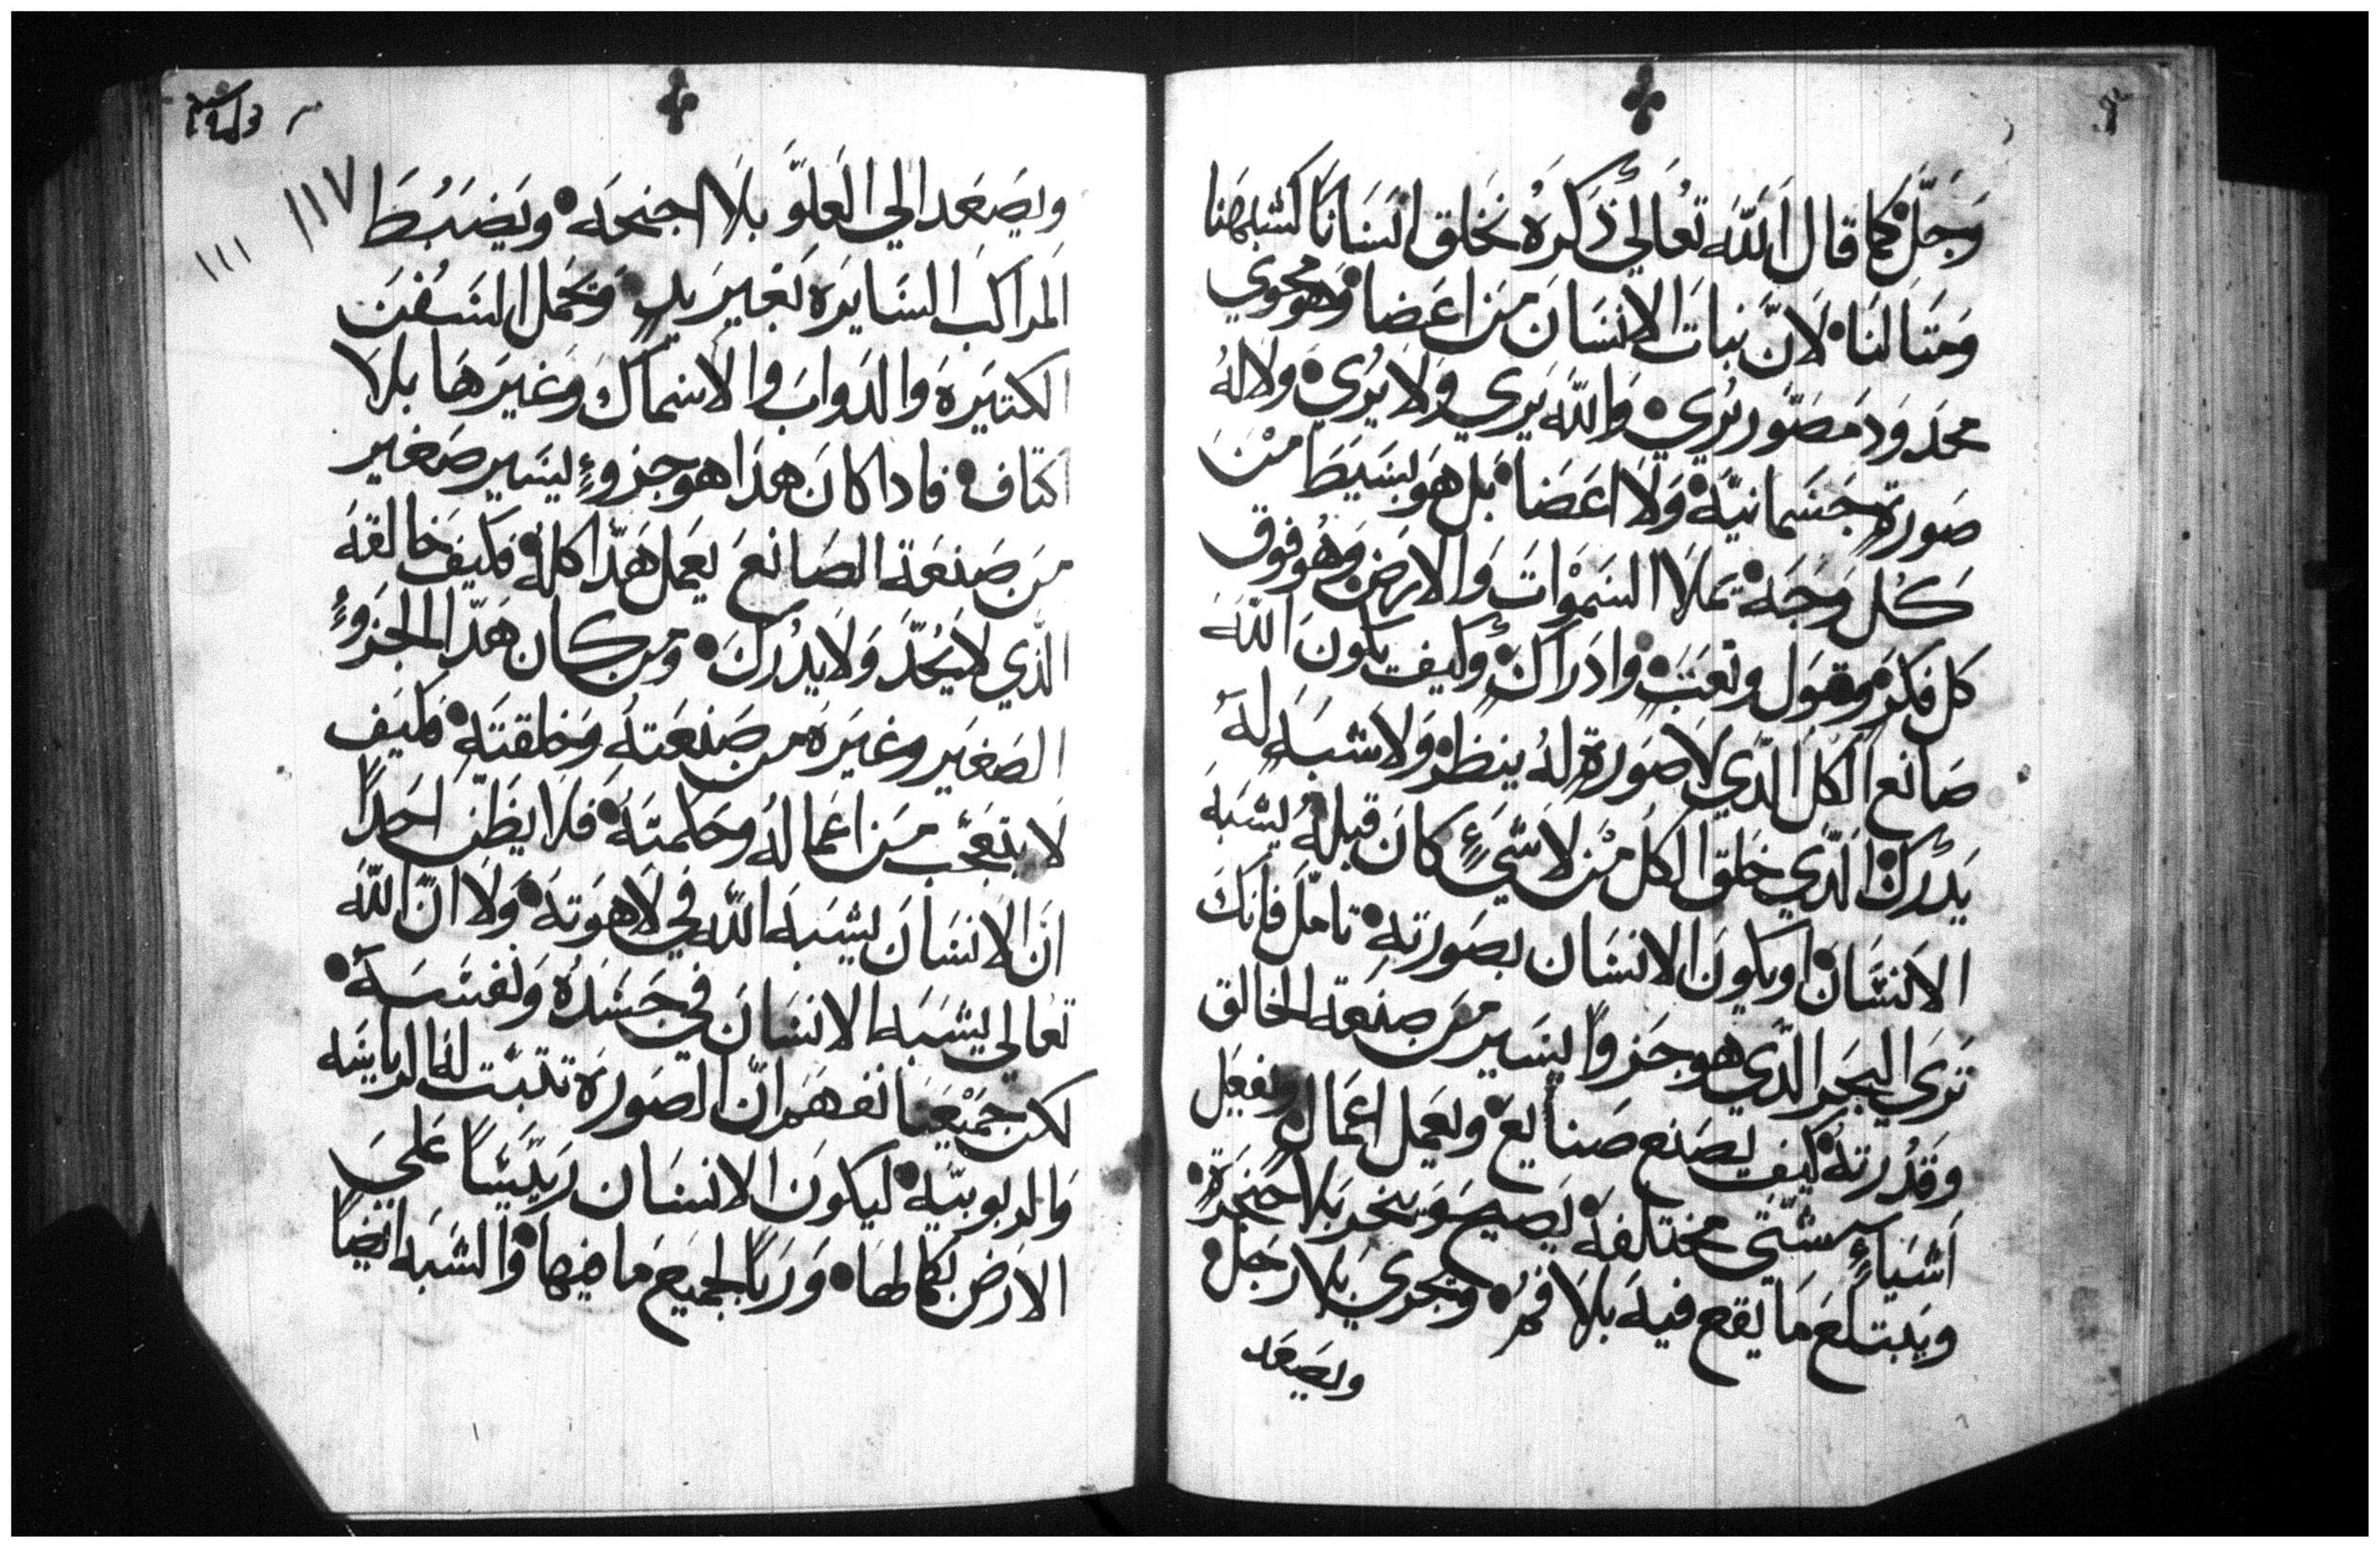 وَجَلَّ كما قال اللّه تعَالي ذكرهُ نخَلق انسَانًا كشبهنا
وَمتَالنَا لانّ نبات الانسَان مَن اعَضا وَهو محوي
محَدوَد مَصَوّر يُري وَاللّه يَري وَلا يُري وَلا لهُ
صَورة جسَمانيّة وَلَا اعَضَا بل هوَ بسَيَط مْن
كُل وَجَه يملَا السَموَات وَالارض وَهُو فوق
كل فكرَ وقوَل ونعَت وادرَاك وكيف يكون اللّه
صَانع الكل الّذي لا صَورة لهُ ينظر وَلا شبَه له
يَدرك الّذي خلق الكل مْن لا شَيءٍ كان قبلهُ يشبَه
الانسَان او يكون الانسَان بصَورته تامّل فانك
تَرَى البحَر الّذي هو جَزوًا يسَير من صنعة الخالق
وَقدُرته كيف يصنع صَنايع وَيعَمل اعَمال ويفعَل
اَشيَاءٍ شتّي مختلفة يَصيح وَينخر بلا حنجَرة
وَيَبتلع مَا يَقع فيه بلَا فمُ وَتجري بلا رجَل
ويصَعَد
ويصَعَد الي العَلوّ بلَا اجنحَه ويَضبُط
المراكب السَايرَه بَغير يدٍ وَتحَمل السَفن
الكتيَره وَالدَواب وَالاسَماك وَغيرَهَا بلا
اكتاف فاداكان هَذا هو جزوءٍ يسَير صَغير
مَن صَنعَة الصَانعَ يعَمل هَذا كلهُ فكيَف خالقهَ
الّذي لا يُحَدّ وَلا يدُرَك ومن كان هَذا الجزوءٍ
الصَغيَر وغيرَه من صَنعَته وَخلقتَه فكيَف
لا يتعَجّب مَن اعَماله وَحكمتَه فلَا يظَن احَداً
انَ الانسَان يشبَه اللّه في لاهَوته وَلا انّ اللّه
تعَالي يشبَه الانسَان في جسَدهُ وَنفسَه
لكن جميَعنا نفهَم انّ الصَورة تثبت له الرياسَه
وَالربوبيّه ليكون الانسَان ريَّسًا عَلي
الارَض بكمالهَا وَرَبًا لجميَع مَا فيها وَالشبَه ايضًا
١١٧
١١١